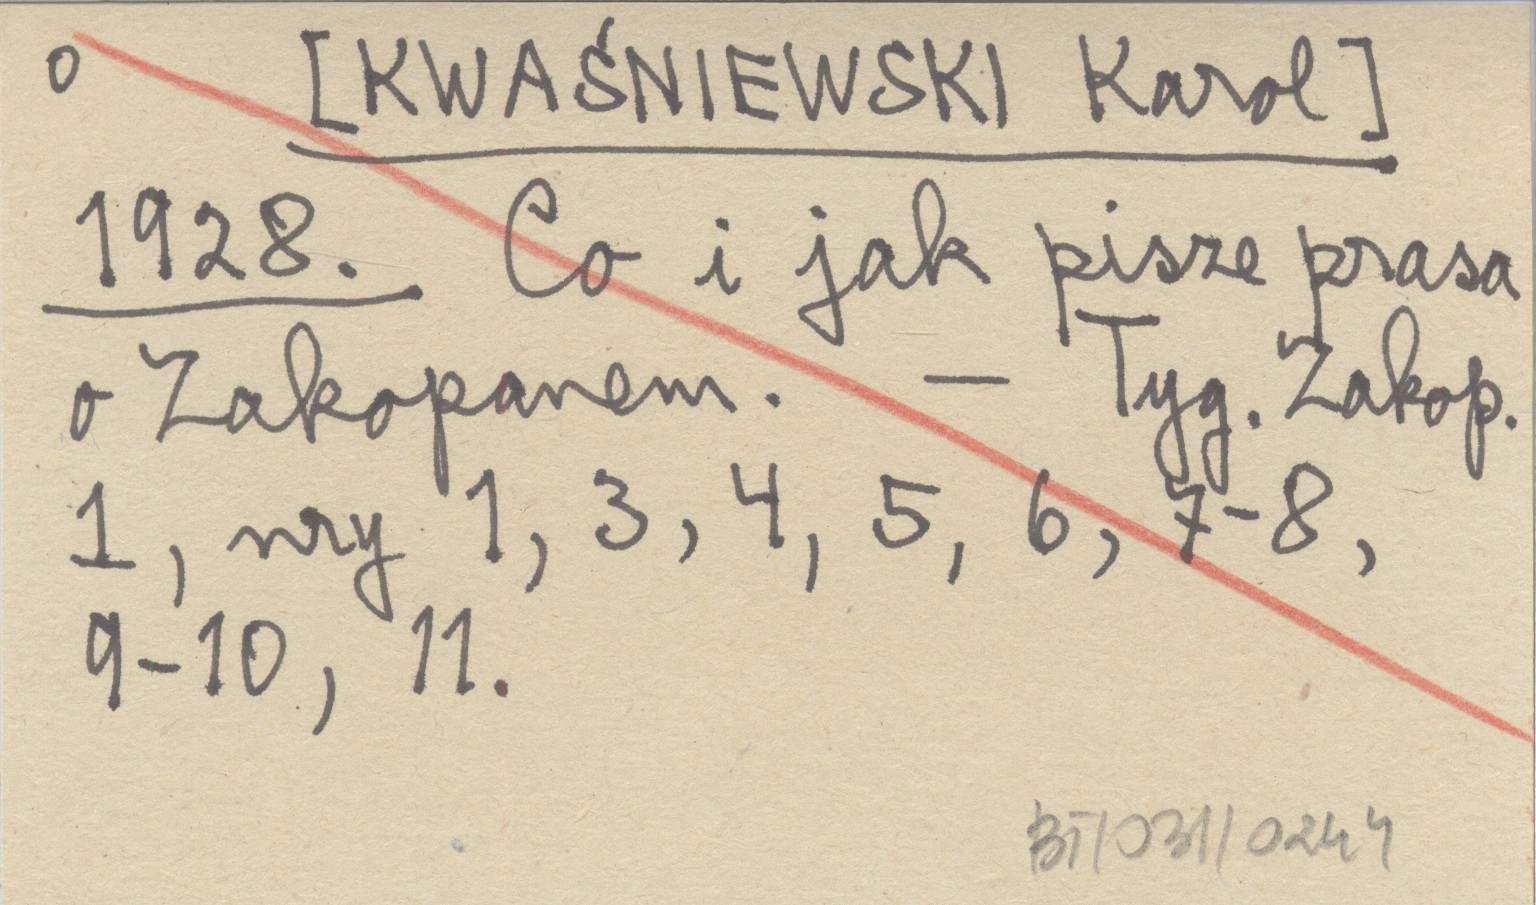 o [KWAŚNIEWSKI Karol]
1928. Co i jak pisze prasa
o Zakopanem. — Tyg. Zakop.
1, nry 1, 3, 4, 5, 6, 7-8,
9-10, 11.
BT/031/0244